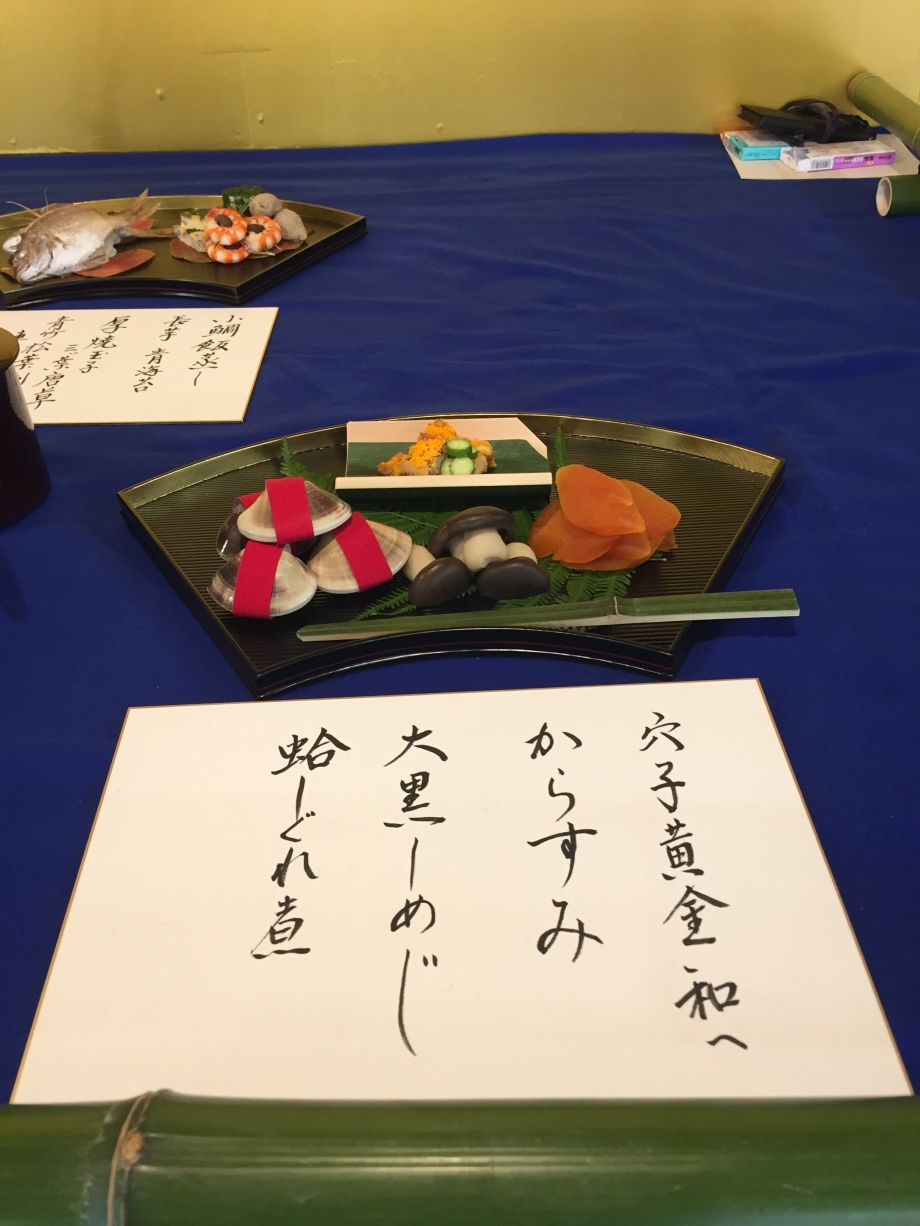 穴子黄金和へ
からすみ
大黒しめじ
蛤しぐれ煮
小鯛飯蒸し
長芋 青海苔
厚焼玉子
三ツ葉唐草
青竹
松葉刺